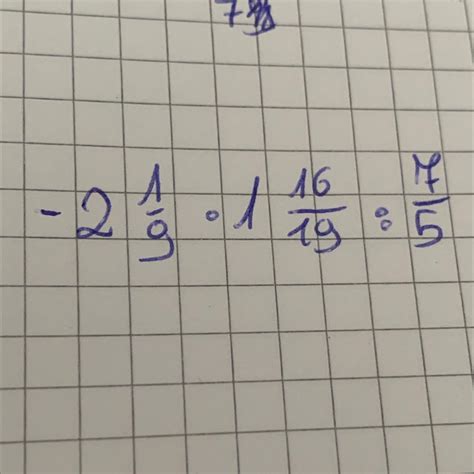 - 2 1/9 · 1 16/19 : 7/5